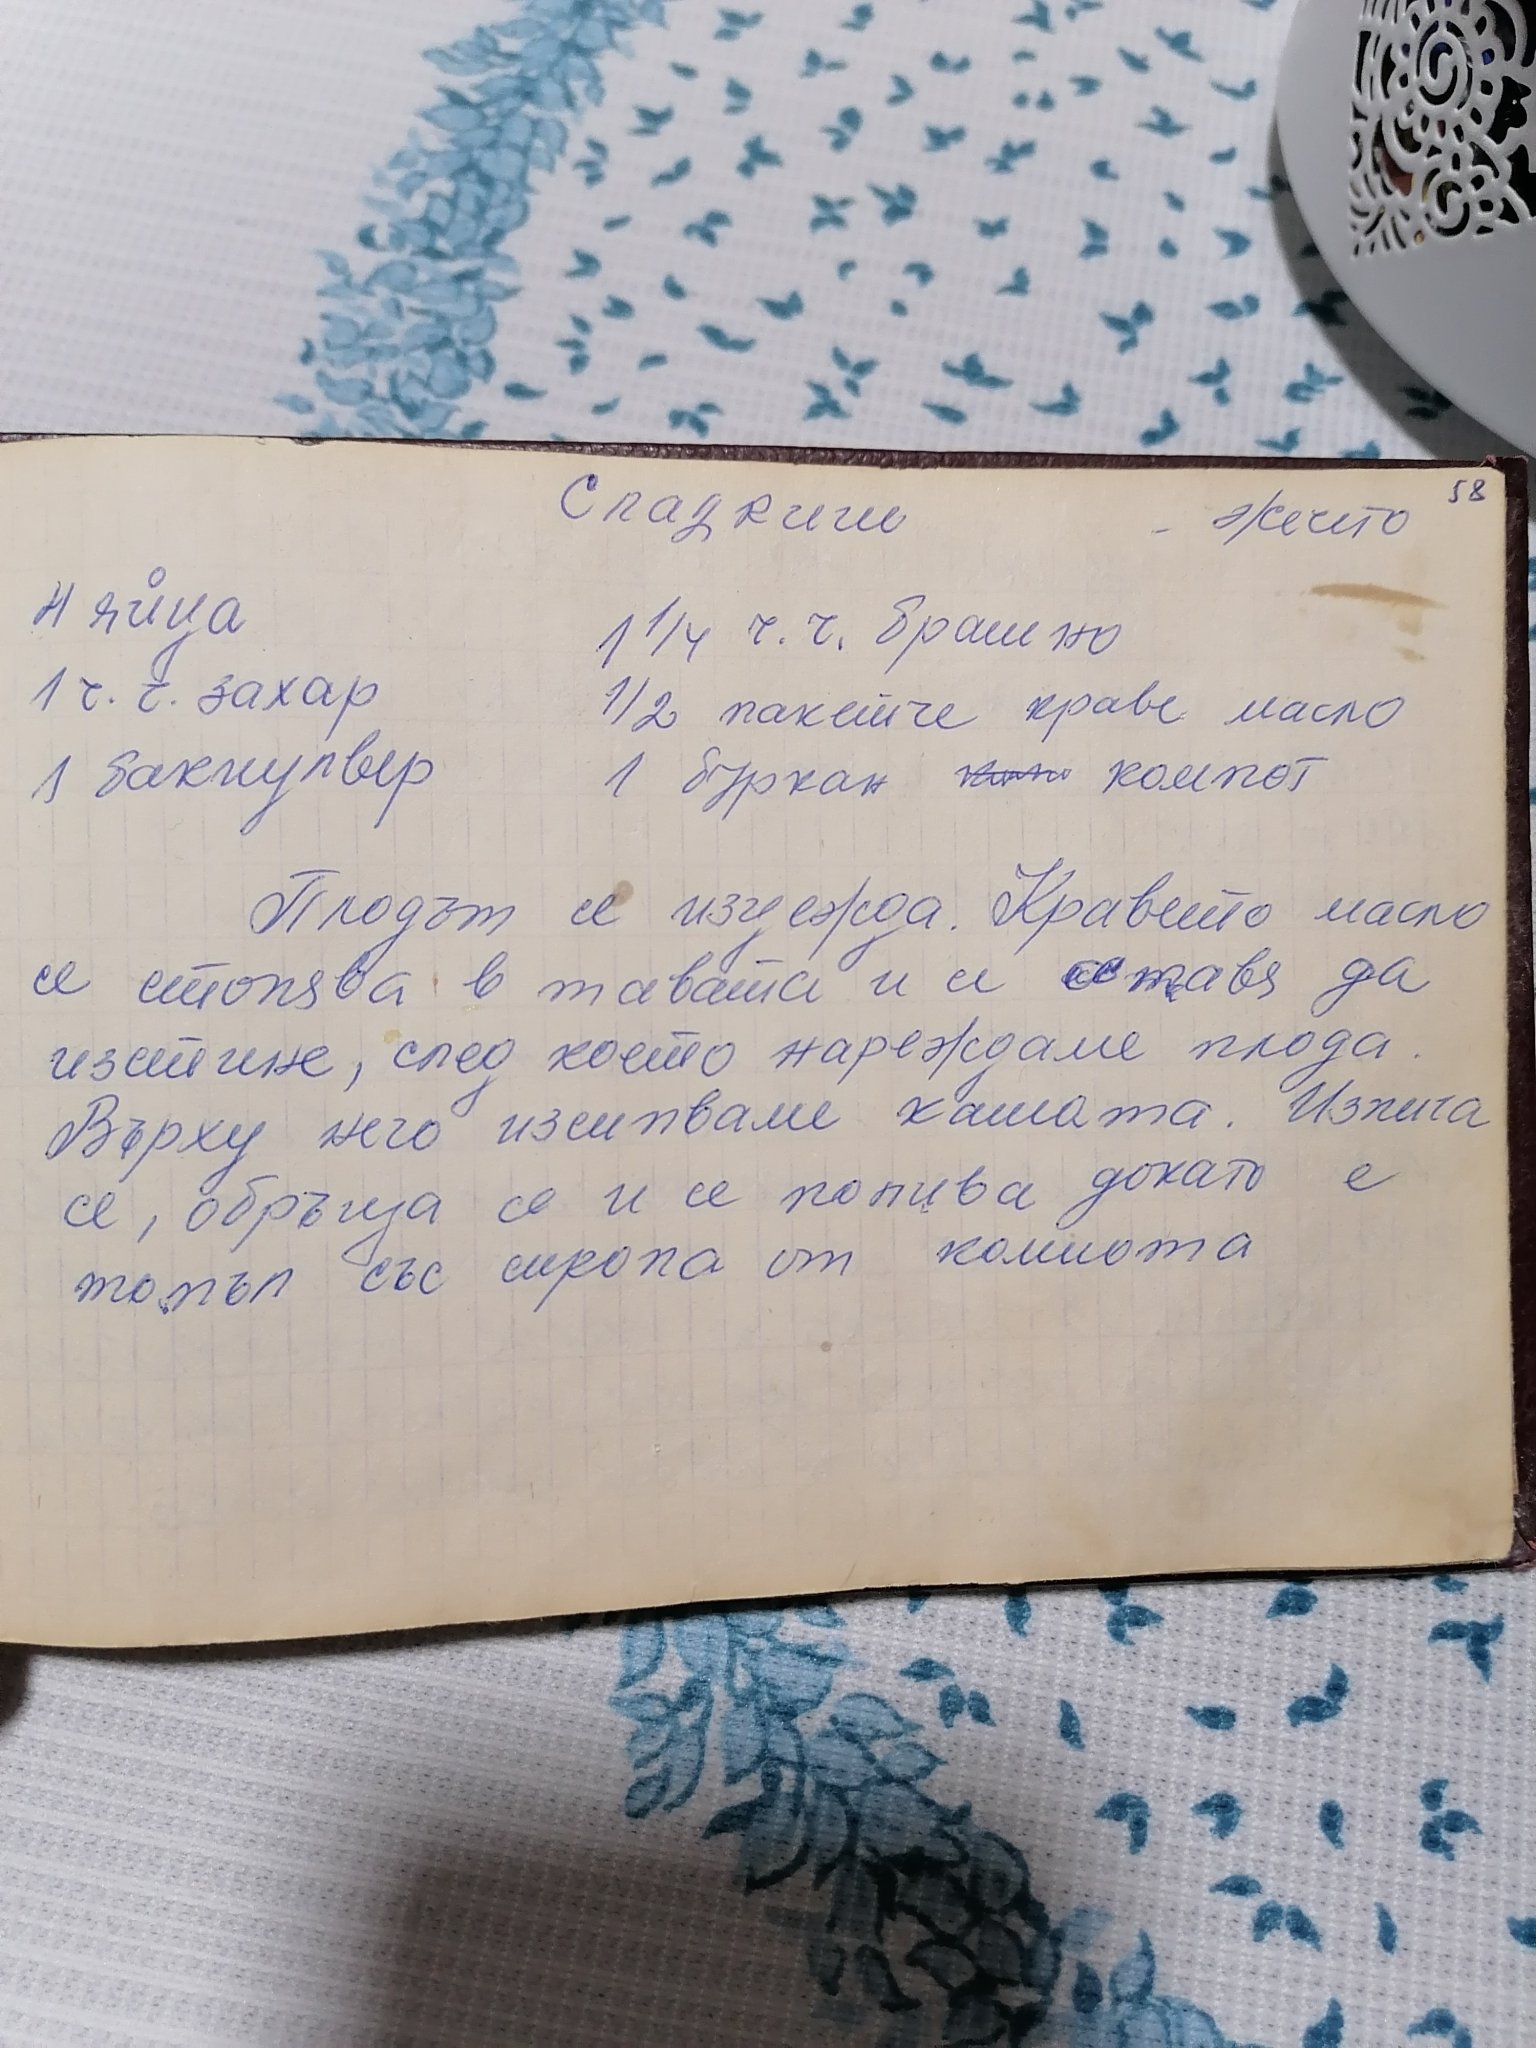 58
Сладкиш - Жечто
4 яйца
1 ч.ч. захар
1 бакпулвер
1 1/4 ч.ч. брашно
1/2 пакетче краве масло
1 буркан компот
Плодът се изцежда. Кравето масло
се стопява в тавата и се оставя да
изстине, след което нареждаме плода.
Върху него изсипваме кашата. Изпича
се, обръща се и се попива докато е
топъл със сиропа от компота